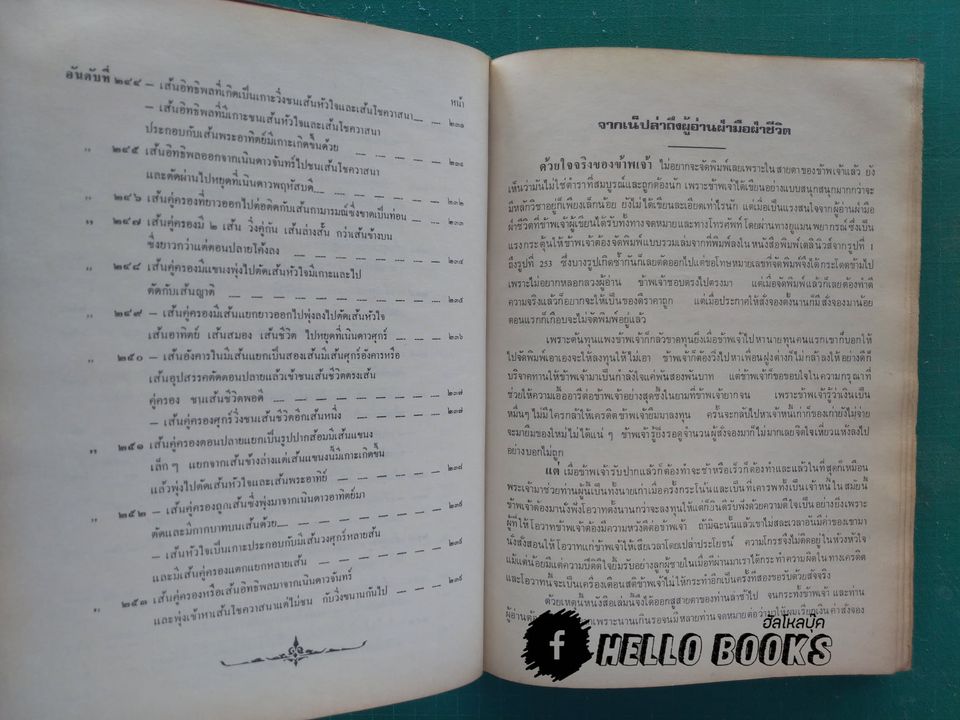 หน้า
อันดับที่ ๒๔๔ — เส้นอิทธิพลที่เกิดเป็นเกาะวิ่งชนเส้นหัวใจและเส้นโชควาสนา ๒๓๑
— เส้นอิทธิพลที่มีเกาะชนเส้นหัวใจและเส้นโชควาสนา
ประกอบกับเส้นพระอาทิตย์มีเกาะเกิดขึ้นด้วย
,, ๒๔๕ เส้นอิทธิพลออกจากเนินดาวจันทร์ไปชนเส้นโชควาสนา
และตัดผ่านไปหยุดที่เนินดาวพฤหัสบดี ๒๓๒
,, ๒๔๖ เส้นคู่ครองที่ยาวออกไปต่อติดกับเส้นกามารมณ์ซึ่งขาดเป็นท่อน
,, ๒๔๗ เส้นคู่ครองมี ๒ เส้น วิ่งคู่กัน เส้นล่างสั้น กว่าเส้นข้างบน
ซึ่งยาวกว่าแต่ตอนปลายโค้งลง ๒๓๔
,, ๒๔๘ เส้นคู่ครองมีแขนงพุ่งไปตัดเส้นหัวใจมีเกาะและไป
ตัดกับเส้นญาติ ๒๓๕
,, ๒๔๙ — เส้นคู่ครองมีเส้นแยกยาวออกไปพุ่งลงไปตัดเส้นหัวใจ
เส้นอาทิตย์ เส้นสมอง เส้นชีวิต ไปหยุดที่เนินดาวศุกร์ ๒๓๖
,, ๒๕๐ — เส้นอังคารในมีเส้นแยกเป็นสองเส้นมีเส้นศุกร์อังคารหรือ
เส้นอุปสรรคตัดตอนปลายแล้วเข้าชนเส้นชีวิตตรงเส้น
คู่ครอง ชนเส้นชีวิตพอดี ๒๓๗
— เส้นคู่ครองศุกร์วิ่งชนเส้นชีวิตอีกเส้นหนึ่ง ๒๓๗
,, ๒๕๑ เส้นคู่ครองตอนปลายแยกเป็นรูปปากส้อมมีเส้นแขนง
เล็กๆ แยกจากเส้นข้างล่างแต่เส้นแขนงนี้มีเกาะเกิดขึ้น
แล้วพุ่งไปตัดเส้นหัวใจและเส้นพระอาทิย์ ๒๓๘
,, ๒๕๒ — เส้นคู่ครองถูกเส้นซึ่งพุ่งมาจากเนินดาวอาทิตย์มา
ตัดและมีกากบาทบนเส้นด้วย ๒๓๘
— เส้นหัวใจเป็นเกาะประกอบกับมีเส้นวงศุกร์หลายเส้น
และมีเส้นคู่ครองแตกแยกหลายเส้น
,, ๒๕๓ เส้นคู่ครองหรือเส้นอิทธิพลมาจากเนินดาวจันทร์
และพุ่งเข้าหาเส้นโชควาสนาแต่ไม่ชน กับวิ่งขนานกันไป
จากเน็ปล่าถึงผู้อ่านฝ่ามือฝ่าชีวิต
ด้วยใจจริงของข้าพเจ้า ไม่อยากจะจัดพิมพ์เลยเพราะในสายตาของข้าพเจ้าแล้ว ยัง
เห็นว่ามันไม่ใช่ตำราที่สมบูรณ์และถูกต้องนัก เพราะข้าพเจ้าได้เขียนอย่างแบบสนุกสนุกมากกว่าจะ
มีหลักวิชาอยู่ก็เพียงเล็กน้อย ยังไม่ได้เขียนละเอียดเท่าไรนัก แต่เมื่อเป็นแรงสนใจจากผู้อ่านฝ่ามือ
ฝ่าชีวิตที่ข้าพเจ้าผู้เขียนได้รับทั้งทางจดหมายและทางโทรศัพท์ โดยผ่านทางยูแมนพยากรณ์ ซึ่งเป็น
แรงกระตุ้นให้ข้าพเจ้าต้องจัดพิมพ์แบบรวมเล่มจากที่พิมพ์ลงในหนังสือพิมพ์เดลินิวส์จากรูปที่ 1
ถึงรูปที่ 253 ซึ่งบางรูปเกิดซ้ำกันก็เลยตัดออกไปแต่ขอโทษหมายเลขที่จัดพิมพ์จึงได้กระโดดข้ามไป
เพราะไม่อยากหลอกลวงผู้อ่าน ข้าพเจ้าชอบตรงไปตรงมา แต่เมื่อจัดพิมพ์แล้วก็เลยต้องทำดี
ความจริงแล้วก็อยากจะให้เป็นของดีราคาถูก แต่เมื่อประกาศให้สั่งจองตั้งนานก็มีสั่งจองมาน้อย
ตอนแรกก็เกือบจะไม่จัดพิมพ์อยู่แล้ว
เพราะต้นทุนแพงข้าพเจ้าก็กลัวขาดทุนยิ่งเมื่อข้าพเจ้าไปหานายทุนคนแรกเขาก็บอกให้
ไปจัดพิมพ์เอาเองจะให้ลงทุนให้ไม่เอา ข้าพเจ้าก็ต้องวิ่งไปหาเพื่อนฝูงต่างก็ไม่กล้าลงให้ อย่างดีก็
บริจาคทานให้ข้าพเจ้ามาเป็นกำลังใจแค่พันสองพันบาท แต่ข้าพเจ้าก็ขอขอบใจในความกรุณาที่
ช่วยให้ความเอื้ออารีต่อข้าพเจ้าอย่างสุดซึ้งในยามที่ข้าพเจ้ายากจน เพราะข้าพเจ้ารู้ว่าเงินเป็น
หมื่นๆ ไม่มีใครกล้าให้เครดิตข้าพเจ้ายืมมาลงทุน ครั้นจะกลับไปหาเจ้าหนี้เก่าก็ของเก่ายังไม่จ่าย
จะมายืมของใหม่ไม่ได้แน่ ๆ ข้าพเจ้ารู้ยิ่งรอดูจำนวนผู้สั่งจองก็ไม่มากเลยจิตใจเหี่ยวแห้งลงไป
อย่างบอกไม่ถูก
แต่ เมื่อข้าพเจ้ารับปากแล้วก็ต้องทำจะช้าหรือเร็วก็ต้องทำและแล้วในที่สุดก็เหมือน
พระเจ้ามาช่วยท่านผู้นี้เป็นทั้งนายเก่าเมื่อครั้งกระโน้นและเป็นที่เคารพทั้งเป็นเจ้าหนี้ในสมัยนี้
ข้าพเจ้าต้องมานั่งฟังโอวาทตั้งนานกว่าจะลงทุนให้แต่ก็ยินดีรับฟังด้วยความดีใจเป็นอย่างยิ่งเพราะ
ผู้ที่ให้โอวาทข้าพเจ้าต้องมีความหวังดีต่อข้าพเจ้า ถ้ามิฉะนั้นแล้วเขาไม่สละเวลาอันมีค่าของเขามา
นั่งสั่งสอนให้โอวาทแก่ข้าพเจ้าให้เสียเวลาโดยเปล่าประโยชน์ ความโกรธจึงไม่ติดอยู่ในหัวหัวใจ
แม้แต่น้อยมีแต่ความปิติดใจยิ้มรับอย่างลูกผู้ชายในเมื่อที่ผ่านมาเราได้กระทำความผิดในทางเครดิต
และโอวาทนี้จะเป็นเครื่องเตือนสติข้าพเจ้าไม่ให้กระทำอีกเป็นครั้งที่สองขอรับด้วยสัจจริง
ด้วยเหตุฉนี้หนังสือเล่มนี้จึงได้ออกสู่สายตาของท่านล่าช้าไป จนกระทั่งข้าพเจ้า และท่าน
ผู้อ่าน เพราะนานเกินรอจนมีหลายท่านจดหมายต่อว่ามาให้ผมเรียกเงินค่าสั่งจอง
ฮัลโหลบุ๊ค
f HELLO BOOKS